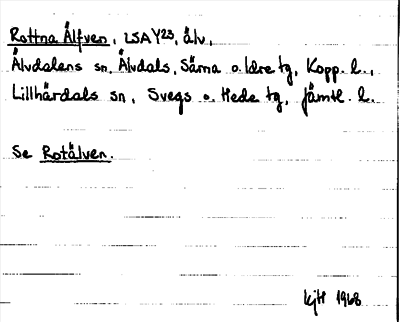 Rottna Älfven, LSA Y23, älv,
Älvdalens sn, Älvdals, Särna o. Idre tg, Kopp. l.,
Lillhärdals sn, Svegs o. Hede tg, Jämtl. l.
Se Rotälven.
kjH 1968